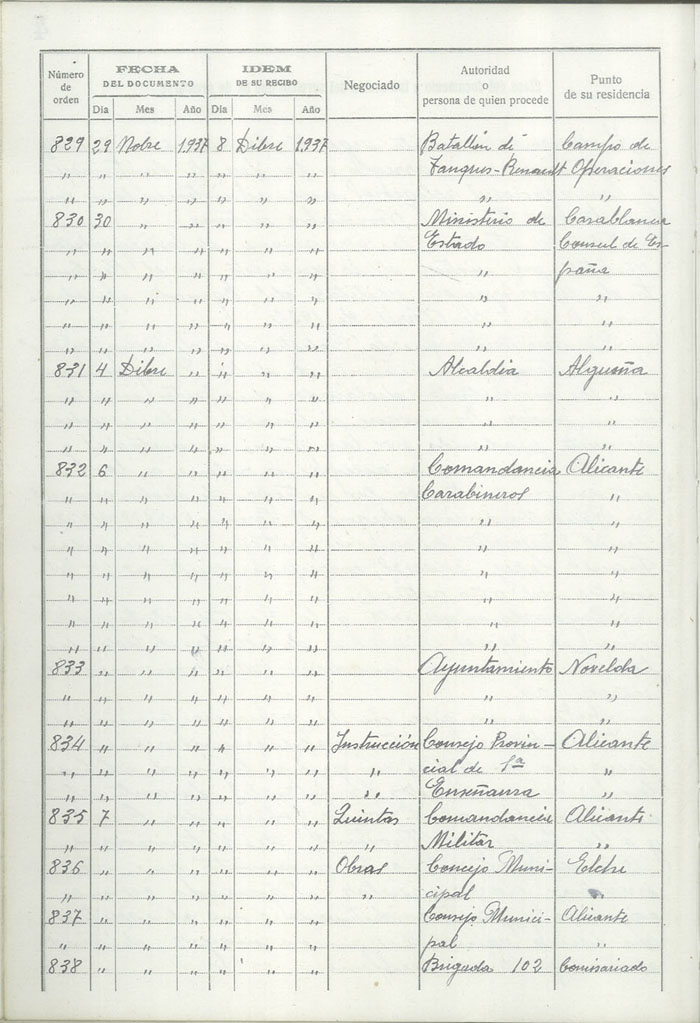 Número de orden FECHA DEL DOCUMENTO IDEM DE SU RECIBO Negociado Autoridad o persona de quien procede Punto de su residencia
Dia Mes Año Dia Mes Año
829 29 Nobre 1937 8 Dibre 1937 Batallón de Campo de
" " " " " " " Tanques-Renault Operaciones
" " " " " " " " "
830 30 " " " " " Ministerio de Casablanca
" " " " " " " Estado Consul de Es-
" " " " " " " " paña
" " " " " " " " "
" " " " " " " " "
" " " " " " " " "
831 4 Dibre " " " " Alcaldia Algueña
" " " " " " " " "
" " " " " " " " "
" " " " " " " " "
832 6 " " " " " Comandancia Alicante
" " " " " " " Carabineros "
" " " " " " " " "
" " " " " " " " "
" " " " " " " " "
" " " " " " " " "
" " " " " " " " "
" " " " " " " " "
833 " " " " " " Ayuntamiento Novelda
" " " " " " " " "
" " " " " " " " "
834 " " " " " " Instrucción Consejo Provin- Alicante
" " " " " " " " cial de 1ª "
" " " " " " " " Enseñanza "
835 7 " " " " " Quintas Comandancia Alicante
" " " " " " " " Militar "
836 " " " " " " Obras Concejo Muni- Elche
" " " " " " " " cipal "
837 " " " " " " Consejo Munici- Alicante
" " " " " " " pal "
838 " " " " " " Brigada 102 Comisariado